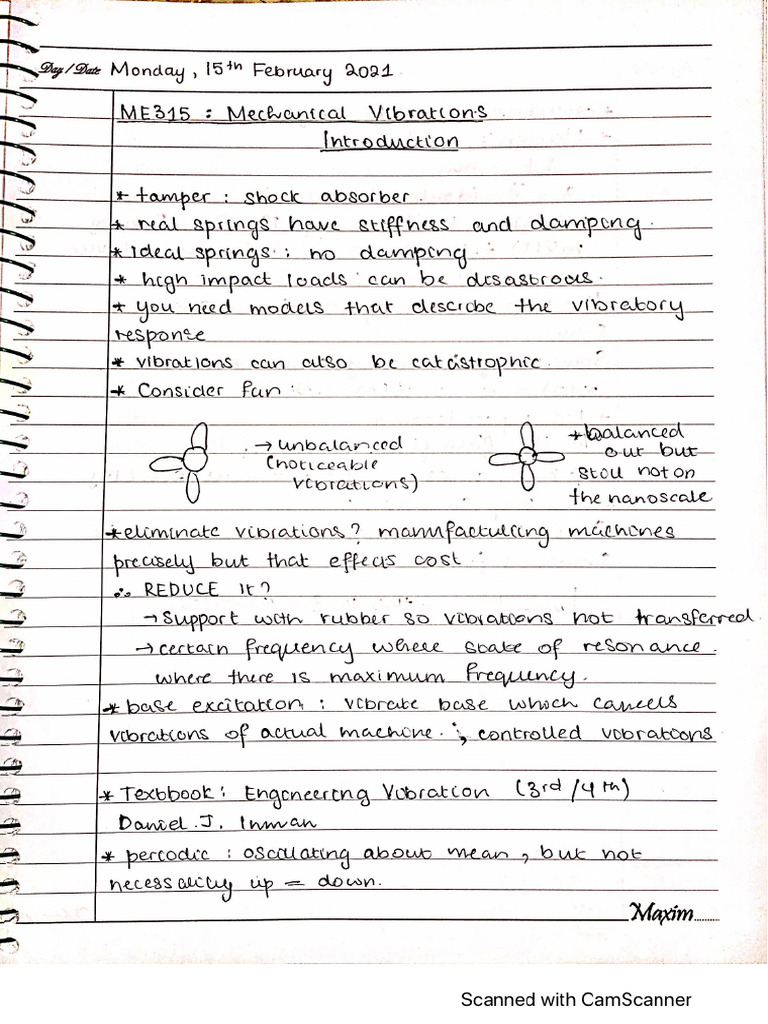 Day / Date Monday, 15th February 2021
ME315 : Mechanical Vibrations
Introduction
* tamper : shock absorber.
* real springs have stiffness and damping.
* ideal springs : no damping
* high impact loads can be disastrous.
* you need models that describe the vibratory
response
* vibrations can also be catastrophic.
* Consider fan
→ unbalanced
(noticeable
vibrations)
* balanced
out but
still not on
the nanoscale
* eliminate vibrations? manufacturing machines
precisely but that effects cost.
∴ REDUCE it?
→ Support with rubber so vibrations not transferred.
→ certain frequency where state of resonance.
where there is maximum frequency.
* base excitation : vibrate base which cancels
vibrations of actual machine. ; controlled vibrations
* Textbook : Engineering Vibration (3rd /4th)
Daniel. J. Inman
* periodic : oscillating about mean, but not
necessality up = down.
Maxim
Scanned with CamScanner